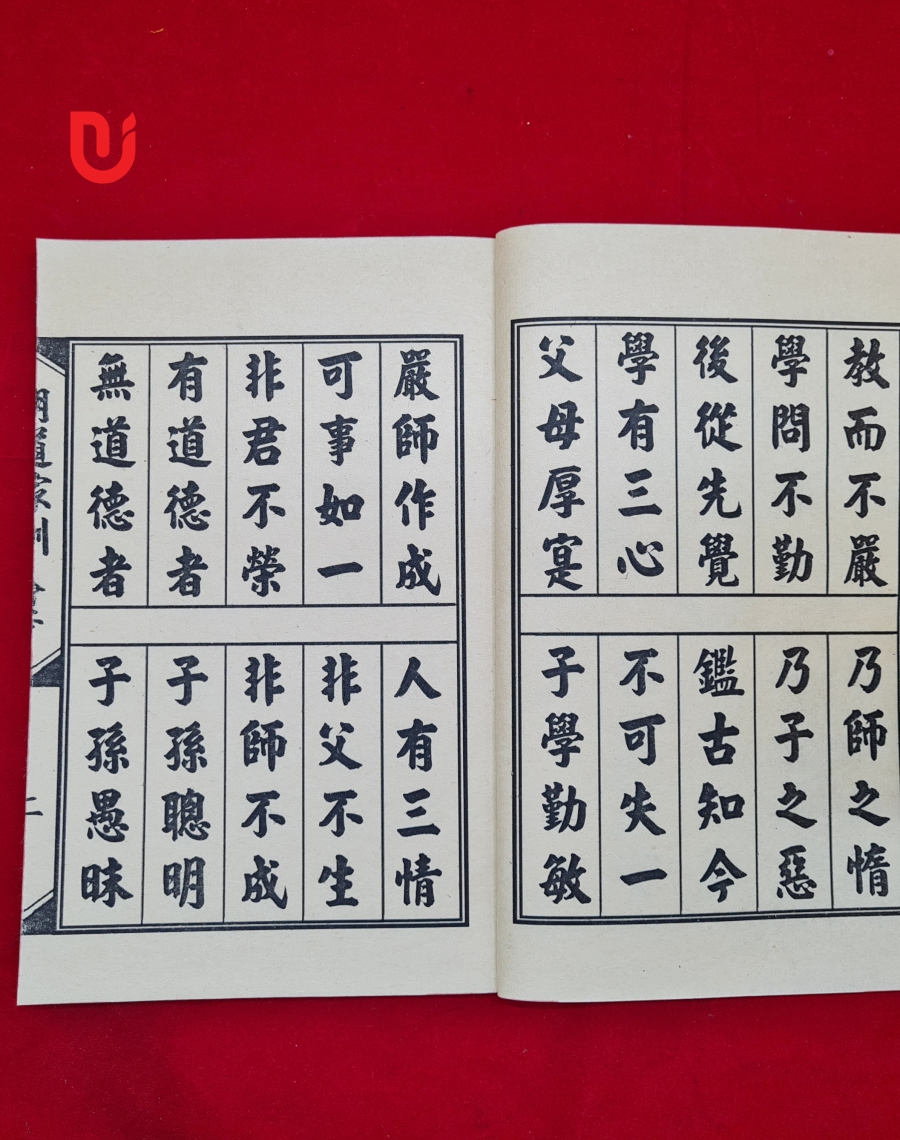 教而不嚴 乃師之惰
學問不勤 乃子之惡
後從先覺 鑑古知今
學有三心 不可失一
父母厚寔 子學勤敏
嚴師作成 人有三情
可事如一 非父不生
非君不榮 非師不成
有道德者 子孫聰明
無道德者 子孫愚昧
明道家訓